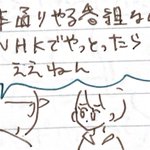 本通りやる番組な
NHKでやっとったら
ええねん